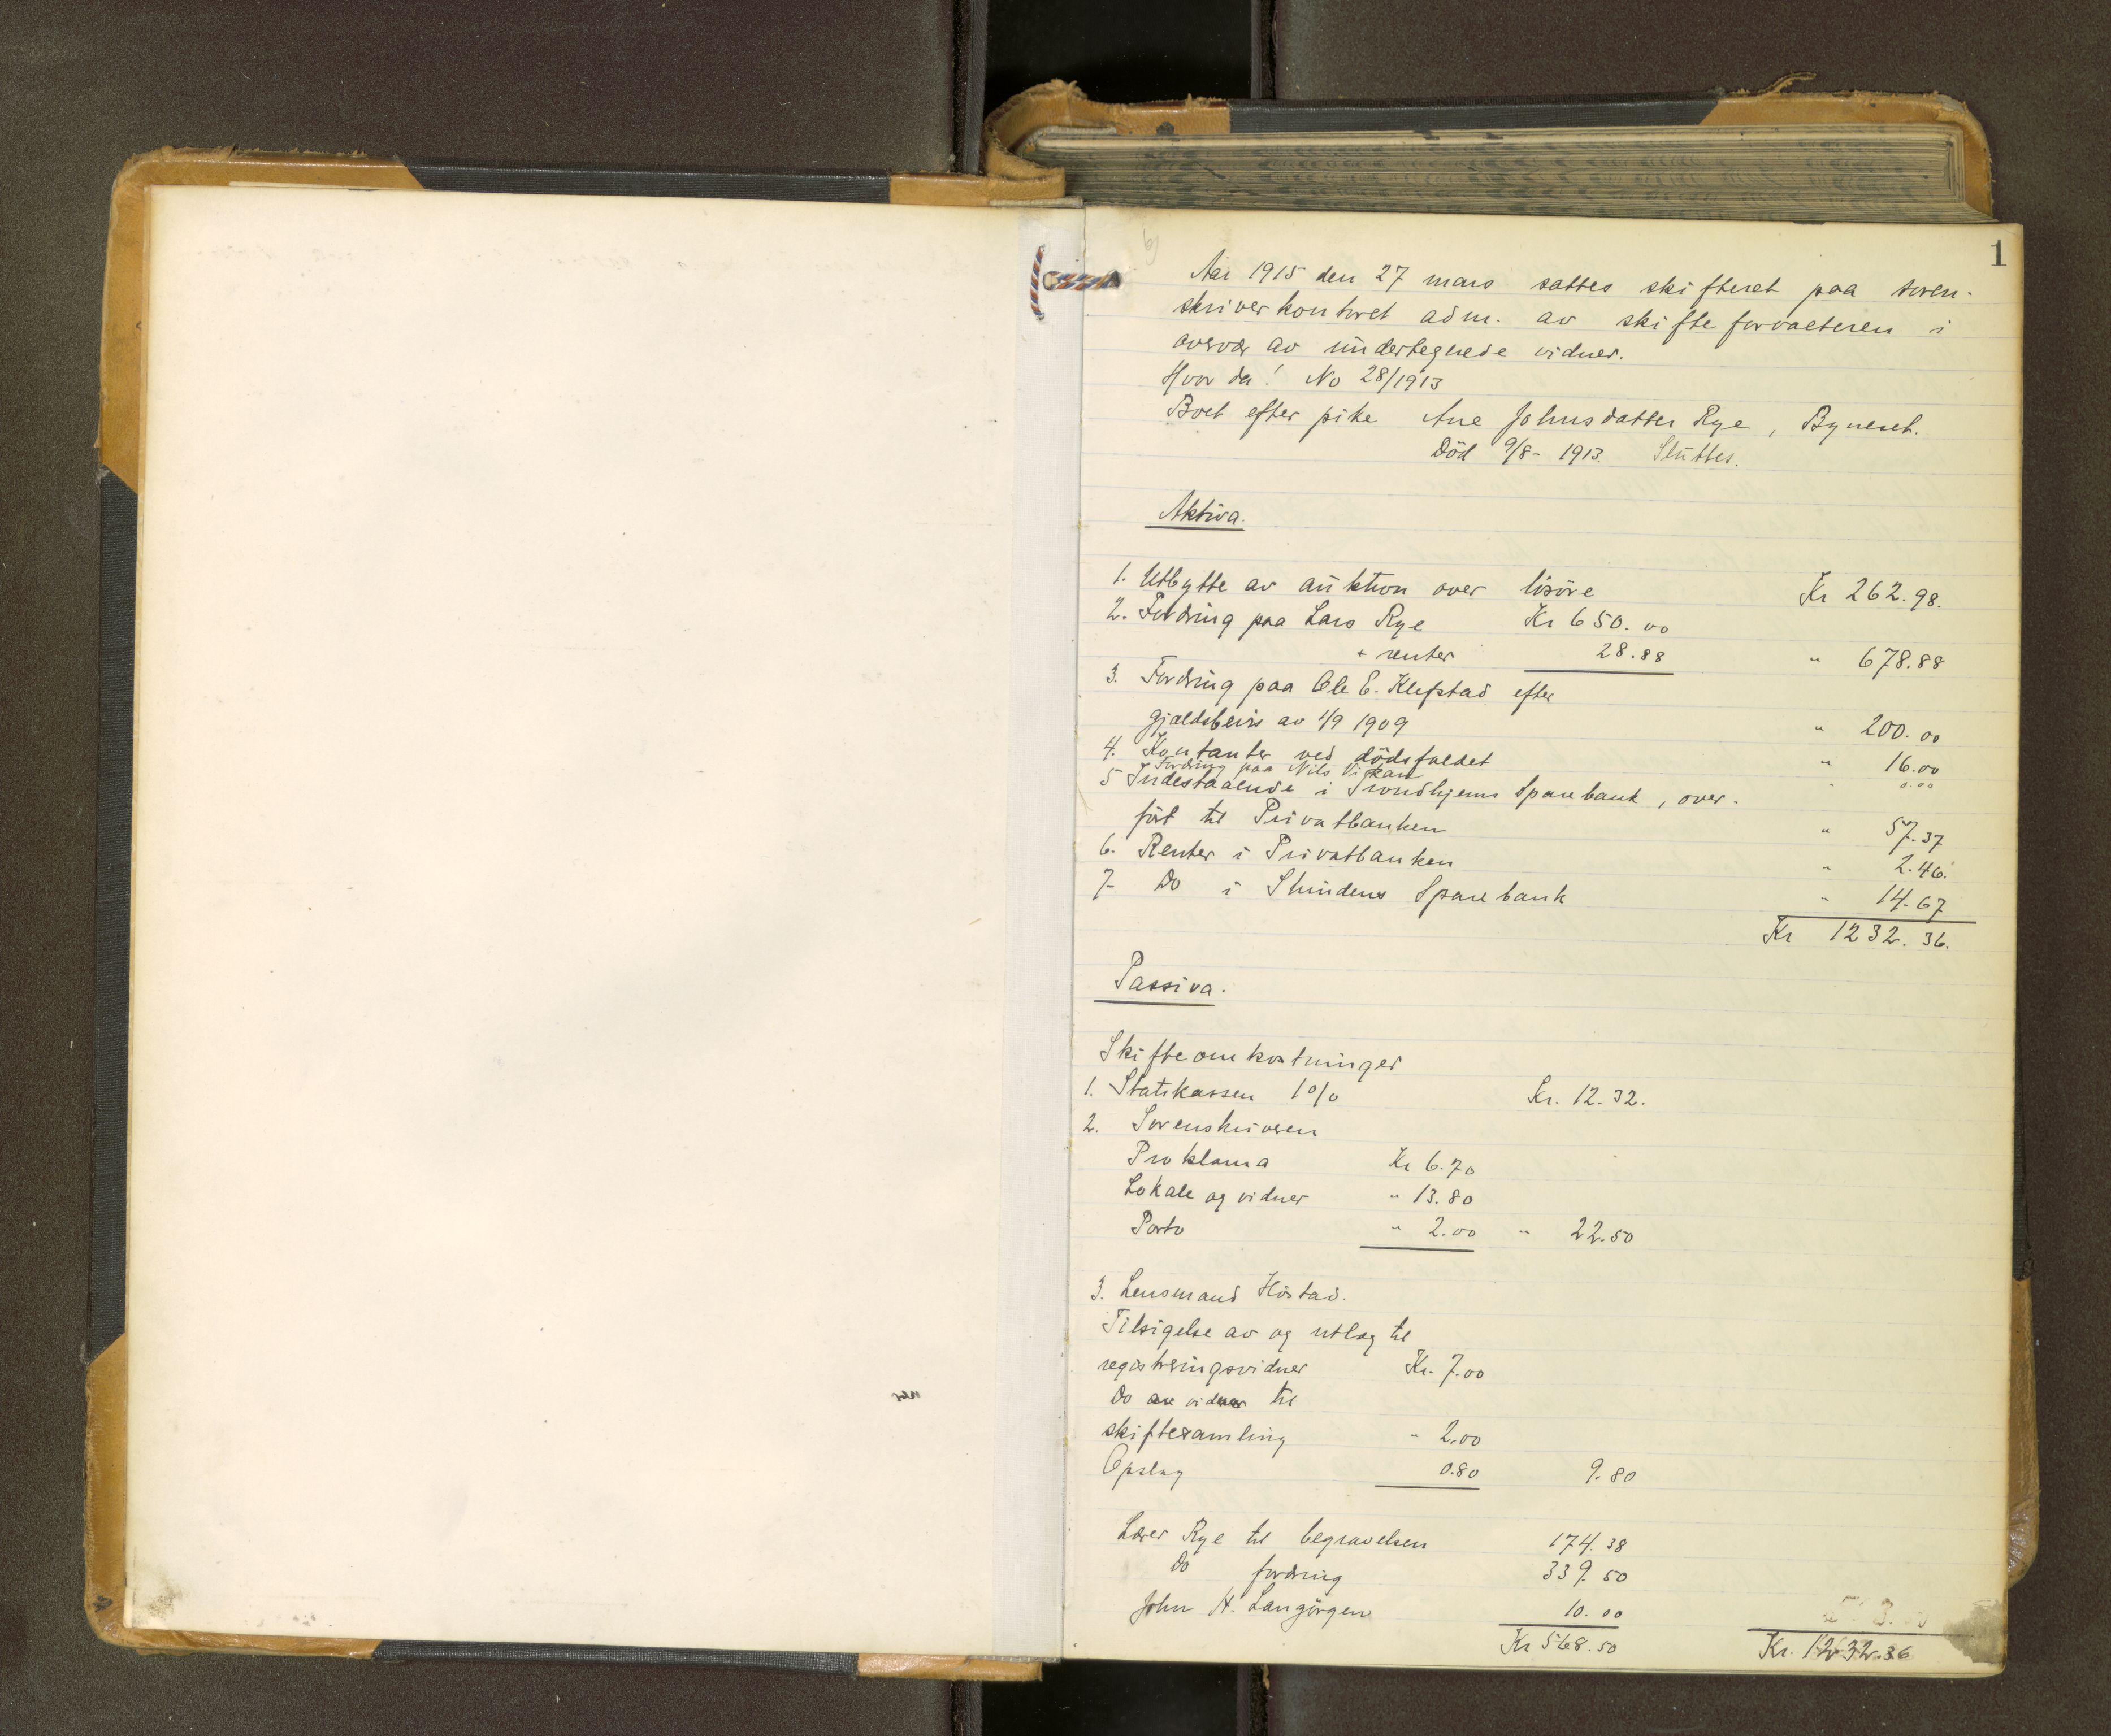 1
Aar 1915 den 27 mars sattes skifteret paa soren-
skriverkontoret adm. av skifteforvalteren i
overvær av undertegnede vidner.
Hvorda! No 28/1913
Boet efter pike Ane Johnsdatter Rye, Byneset.
Död 9/8- 1913. Sluttes.
Aktiva.
1. Utbytte av auktion over lösöre Kr 262.98.
2. Fordring paa Lars Rye Kr 650.00
+ renter 28.88 " 678.88
3. Fordring paa Ole E. Klefstad efter
gjældsbevis av 1/9 1909 " 200.00
4. Kontanter ved dödsfaldet " 16.00
Fordring paa Nils Vigkan " 0.00
5 Indestaaende i Trondhjems Sparebank, over-
fört til Privatbanken " 57.37
6. Renter i Privatbanken " 2.46.
7- Do i Strindens Sparebank " 14.67
Kr 1232.36.
Passiva.
Skifteomkostninger
1. Statskassen 1 0/0 Kr. 12.32.
2. Sorenskriveren
Proklama Kr 6.70
Lokale og vidner " 13.80
Porto " 2.00 " 22.50
3. Lensmand Höstad.
Tilsigelse av og utlæg til
registreringsvidner Kr. 7.00
Do av vidner til
skiftesamling " 2.00
Opslag 0.80 9.80
Lærer Rye til begravelsen 174.38
Do fordring 339.50
John H. Langörgen 10.00
Kr 568.50 Kr. 1232.36